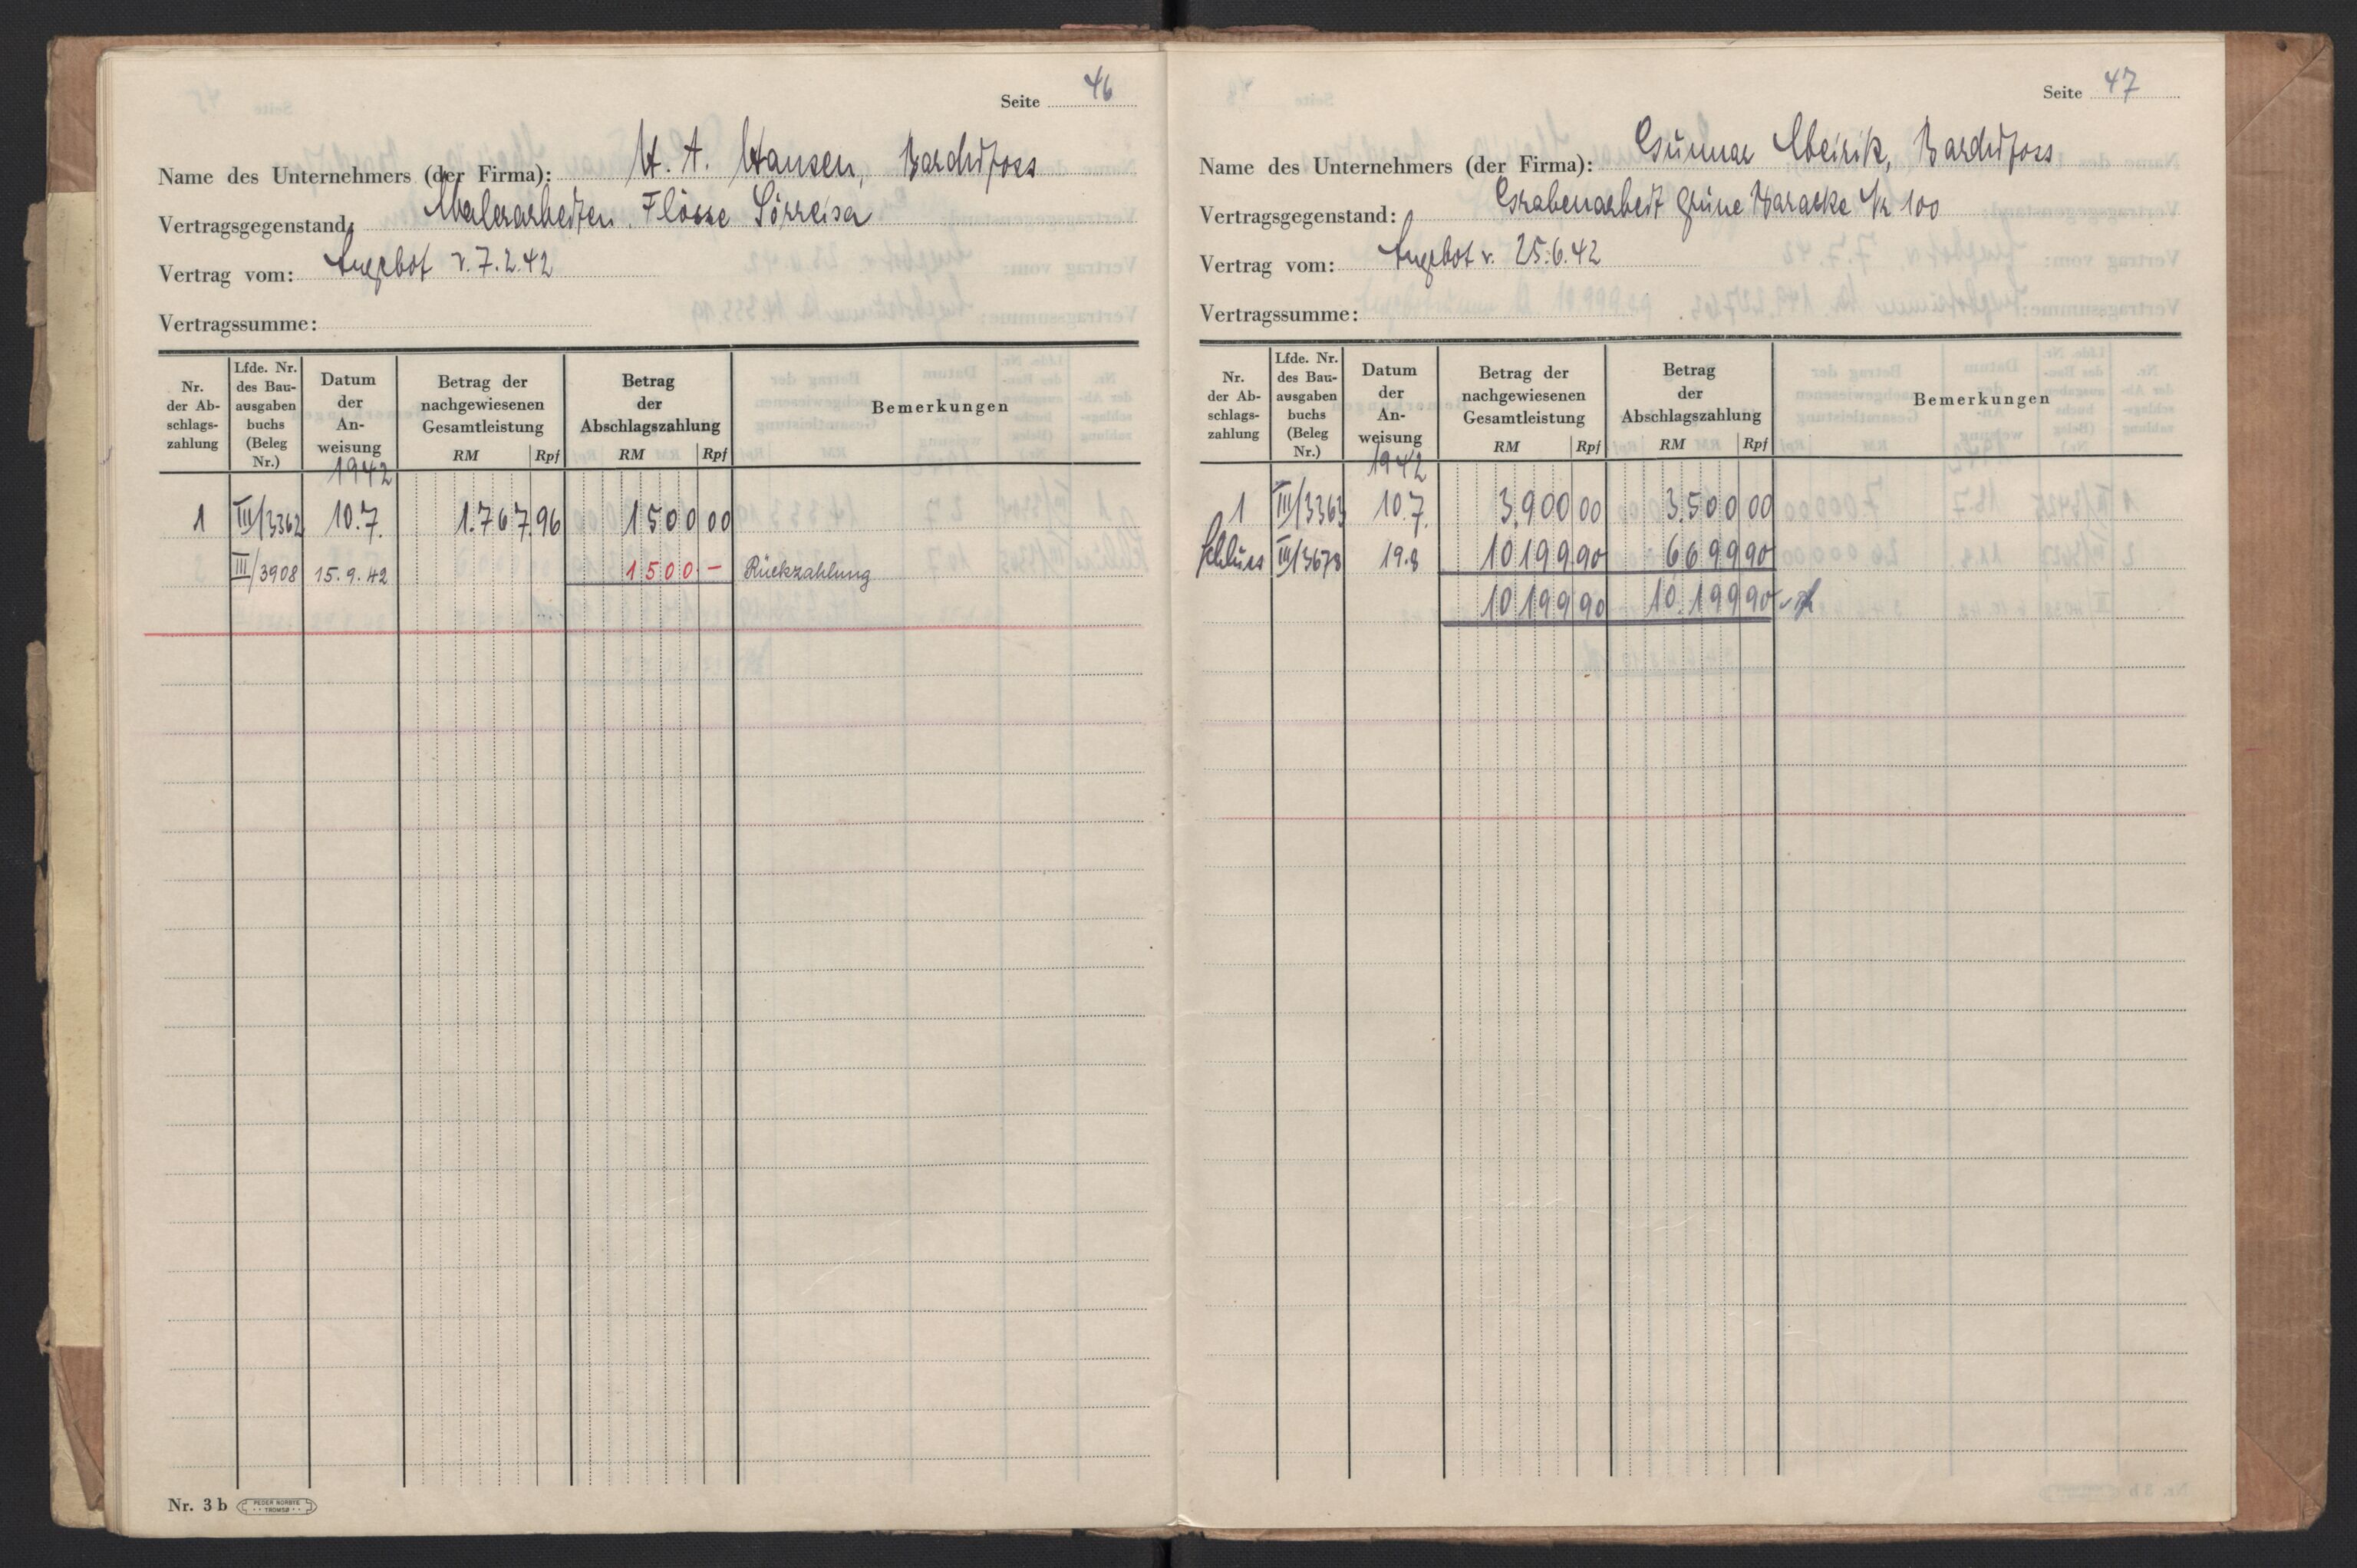 Seite 46
Name des Unternehmers (der Firma): H. A. Hansen, Bardufoss
Vertragsgegenstand: Malerarbeiten Flösse Sörreisa
Vertrag vom: Angebot v. 7.2.42
Vertragssumme:
Nr. der Ab-schlags-zahlung | Lfde. Nr. des Bau-ausgaben buchs (Beleg Nr.) | Datum der An-weisung | Betrag der nachgewiesenen Gesamtleistung RM Rpf | Betrag der Abschlagszahlung RM Rpf | Bemerkungen
1942
1 III/3362 10.7. 1.767.96 1500 00
III/3908 15.9.42 1500 – Rückzahlung
Nr. 3 b PEDER NORBYE TROMSØ
Seite 47
Name des Unternehmers (der Firma): Gunnar Bardufoss
Vertragsgegenstand: Grabenarbeit grüne Baracke Nr 100
Vertrag vom: Angebot v. 25.6.42
Vertragssumme:
Nr. der Ab-schlags-zahlung | Lfde. Nr. des Bau-ausgaben buchs (Beleg Nr.) | Datum der An-weisung | Betrag der nachgewiesenen Gesamtleistung RM Rpf | Betrag der Abschlagszahlung RM Rpf | Bemerkungen
1942
1 III/3363 10.7. 3.900 00 3.500 00
Schluss III/3678 19.8 10199 90 6699 90
10199 90 10.199 90